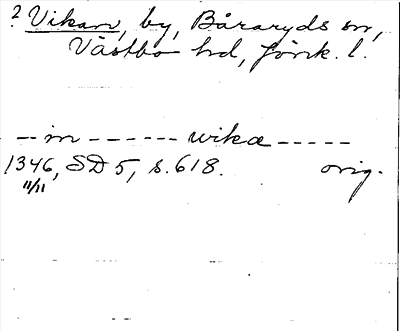 ? Vikan, by, Båraryds sn,
Västbo hd, Jönk. l.
-- in ------- wikæ -----
1346, SD 5, s. 618. orig.
11/11